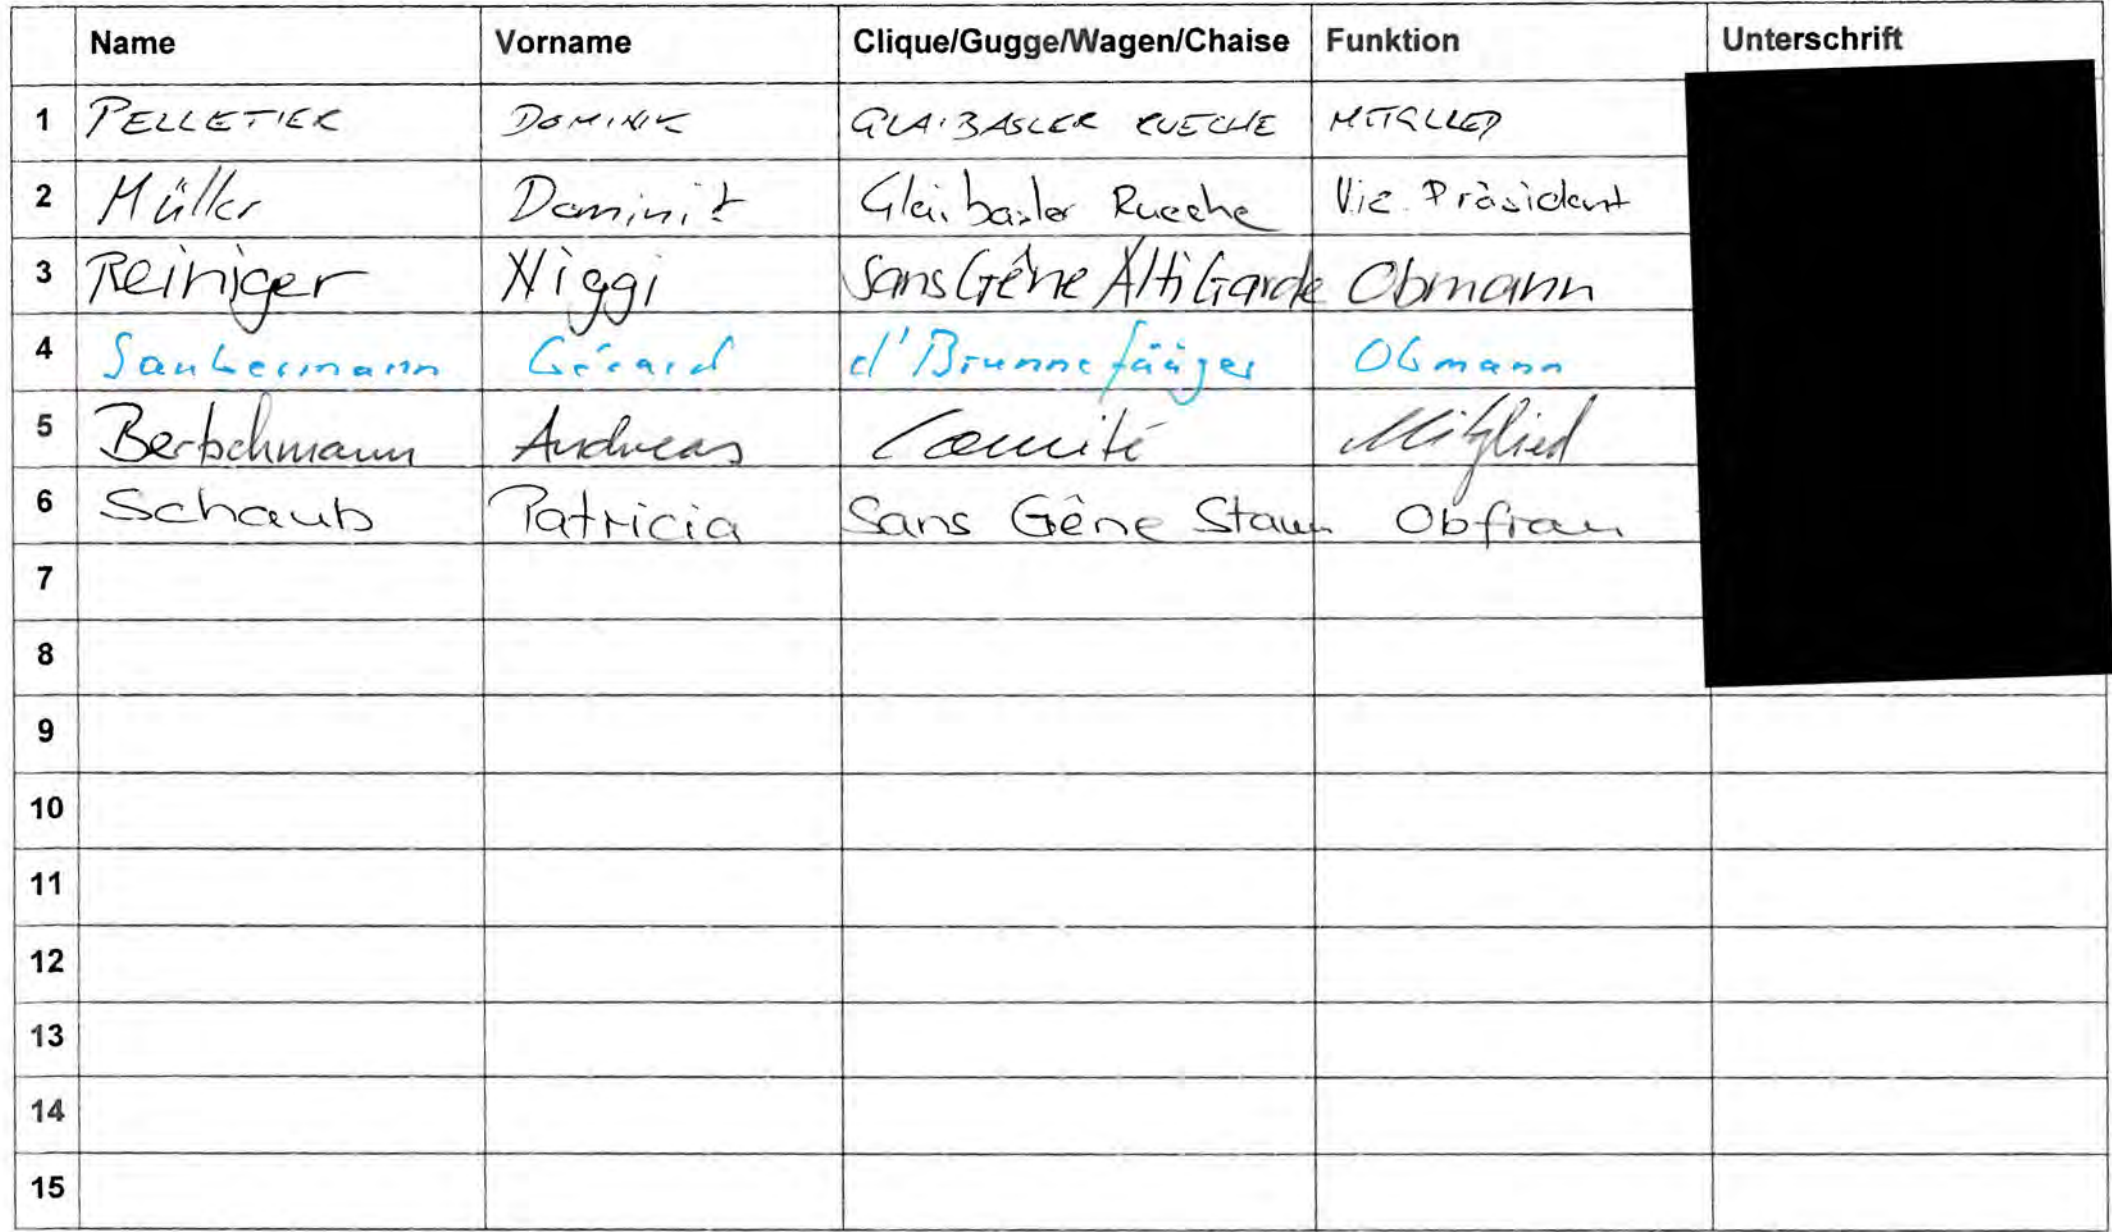 Name Vorname Clique/Gugge/Wagen/Chaise Funktion Unterschrift
1 PELLETIER DOMINIK GLAIBASLER RUECHE MITGLIED
2 Müller Dominik Glaibasler Rueche Viz. Präsident
3 Reiniger Niggi Sans Gêne Alti Garde Obmann
4 Saubermann Gérard d'Brunnefäärger Obmann
5 Bertschmann Andreas Comité Mitglied
6 Schaub Patricia Sans Gêne Stamm Obfrau
7
8
9
10
11
12
13
14
15